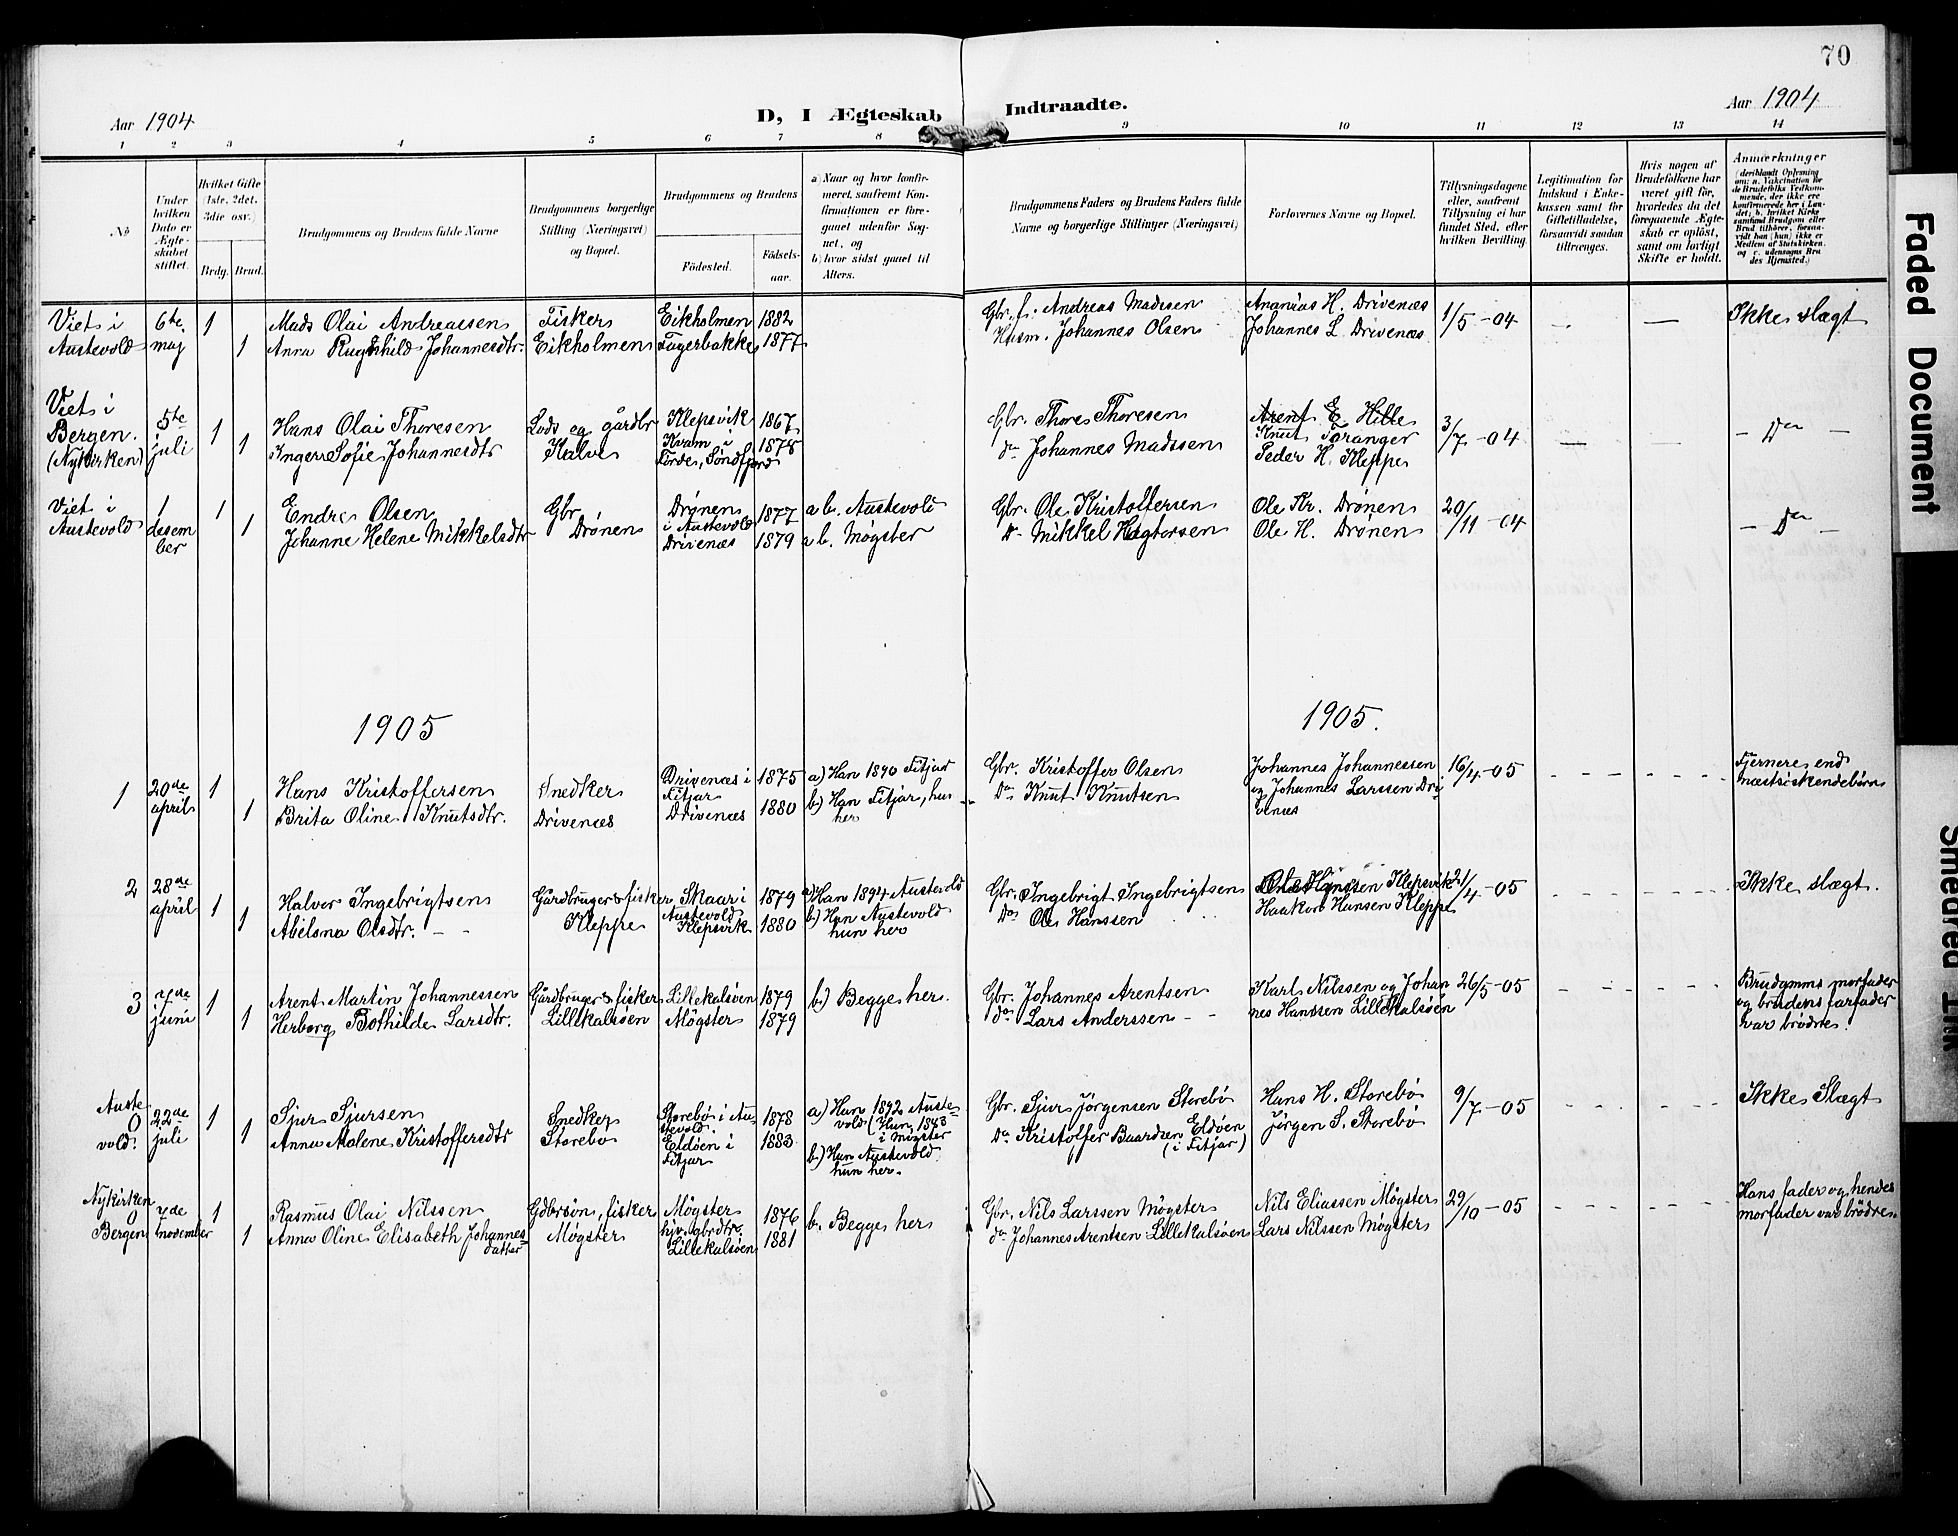 70
Aar 1904
D, I Ægteskab Indtraadte.
Aar 1904
1 2 3 4 5 6 7 8 9 10 11 12 13 14
No
Under
hvilken
Dato er
Ægte-
skabet
stiftet.
Hvilket Gifte
(1ste, 2det,
3die osv.)
Brdg. Brud.
Brudgommens og Brudens fulde Navne
Brudgommens borgerlige
Stilling (Næringsvei)
og Bopæl.
Brudgommens og Brudens
Fødested.
Fødsels-
aar.
a) Naar og hvor konfir-
meret, saafremt Kon-
firmationen er fore-
gaaet udenfor Sog-
net, og
b) hvor sidst gaaet til
Alters.
Brudgommens Faders og Brudens Faders fulde
Navne og borgerlige Stillinger (Næringsvei)
Forlovernes Navne og Bopæl.
Tillysningsdagene
eller, saafremt
Tillysning ei har
fundet Sted, efter
hvilken Bevilling.
Legitimation for
Indskud i Enke-
kassen samt for
Giftetilladelse,
forsaavidt saadan
tiltrænges.
Hvis nogen af
Brudefolkene har
været gift før,
hvorledes da det
foregaaende Ægte-
skab er opløst,
samt om lovligt
Skifte er holdt.
Anmærkninger
(deriblandt Oplysning
om: a. Vakcination for
de Brudefolks Vedkom-
mende, der ikke ere
konfirmerede her i Lan-
det; b. hvilket Kirke
samfund Brudgom eller
Brud tilhører, forsaa-
vidt han (hun) ikke er
Medlem af Statskirken.
og c. udensogns Bru
des Hjemsted.)
Viet i
Austevold
6te
maj
1
1
Mads Olai Andreassen
Anna Johannesdtr.
Fisker
Eikholmen
Eikholmen 1882
Fagerbakke 1877
Gbr. f. Andreas Madssen
Husm. Johannes Olsen
Ananias H. Drivenæs
Johannes L. Drivenæs
1/5 - 04
Ikke slægt
Viet i
Bergen.
(Nykirken)
5te
juli
1
1
Hans Olai Thoresen
Inger Sofie Johannesdtr
Lods og gårdbr
Kalve
Klepsvik 1867
Kvam i 1878
Førde, Søndfjord
Gbr. Thore Thoresen
do Johannes Madssen
Arent E. Hille
Knut Soranger
Peder H. Kleppe
3/7 - 04
- Do -
Viet i
Austevold
1
desem
ber
1
1
Endre Olsen
Johanne Helene Mikkelsdtr
Gbr
Drønen
Drønen 1877
i Austevold
Drivenæs 1879
a b. Austevold
a b. Møgster
Gbr. Ole Kristoffersen
D- Mikkel Hagtorsen
Ole Kr. Drønen
Ole H. Drønen
20/11 - 04
- Do -
1905
1905.
1
20de
april
1
1
Hans Kristoffersen
Brita Oline Knutsdtr.
Snedker
Drivenæs
Drivenæs i 1875
Fitjar
Drivenæs 1880
a) Han 1890 Fitjar
b) Han Fitjar, hun
her
Gbr. Kristoffer Olsen
Do Knut Knutsen
Johannes Johannessen
og Johannes Larssen Dri
venæs
16/4 - 05
Fjernere end
næstsøskendebørn
2
28de
april
1
1
Halvor Ingebrigtsen
Abelona Olsdtr.
Gårdbruger & fisker
Kleppe
Skaar i 1879
Austevold
Klepsvik 1880
a) Han 1894 Austevold
b) Han Austevold
hun her
Gbr. Ingebrigt Ingebrigtsen
Do Ole Hanssen
Hanssen Klepsvik
Haakon Hansen Kleppe
21/4 - 05
Ikke slægt.
3
7de
juni
1
1
Arent Martin Johannessen
Herborg Bothilde Larsdtr.
Gårdbruger & fisker
Lillekalsøen
Lillekalsøen 1879
Møgster 1879
b.) Begge her.
Gbr. Johannes Arentsen
do Lars Anderssen
Karl Nilssen og Johan
nes Hanssen Lillekalsøen
26/5 - 05
Brudgomms morfader
og brudens farfader
var brødre.
Auste
0
vold.
22de
juli
1
1
Sjur Sjursen
Anna Malene Kristoffersdtr
Snedker
Storebø
Storebø i Au 1878
stevold.
Eldøen i 1883
Fitjar
a) Han 1892 Auste-
vold (Hun
i Møgster
b.) Han Austevold
hun her.
Gbr. Sjur Jørgensen Storebø
Do Kristoffer Baardsen Eldøen
(i Fitjar)
Hans H. Storebø
Jørgen S. Storebø
9/7 - 05
Ikke Slægt
Nykirken
0
Bergen
7de
november
1
1
Rasmus Olai Nilssen
Anna Oline Elisabeth Johannes-
datter
Gdbrsøn, fisker
Møgster
Møgster 1876
hjv. gbrdtr. 1881
Lillekalsøen
b. Begge her
Gbr. Nils Larssen Møgster
do Johannes Arentsen Lillekalsøen
Nils Eliassen Møgster
Lars Nilssen Møgster
29/10 - 05
Hans fader og hendes
morfader var brødre.
Faded Document
Smeared Ink